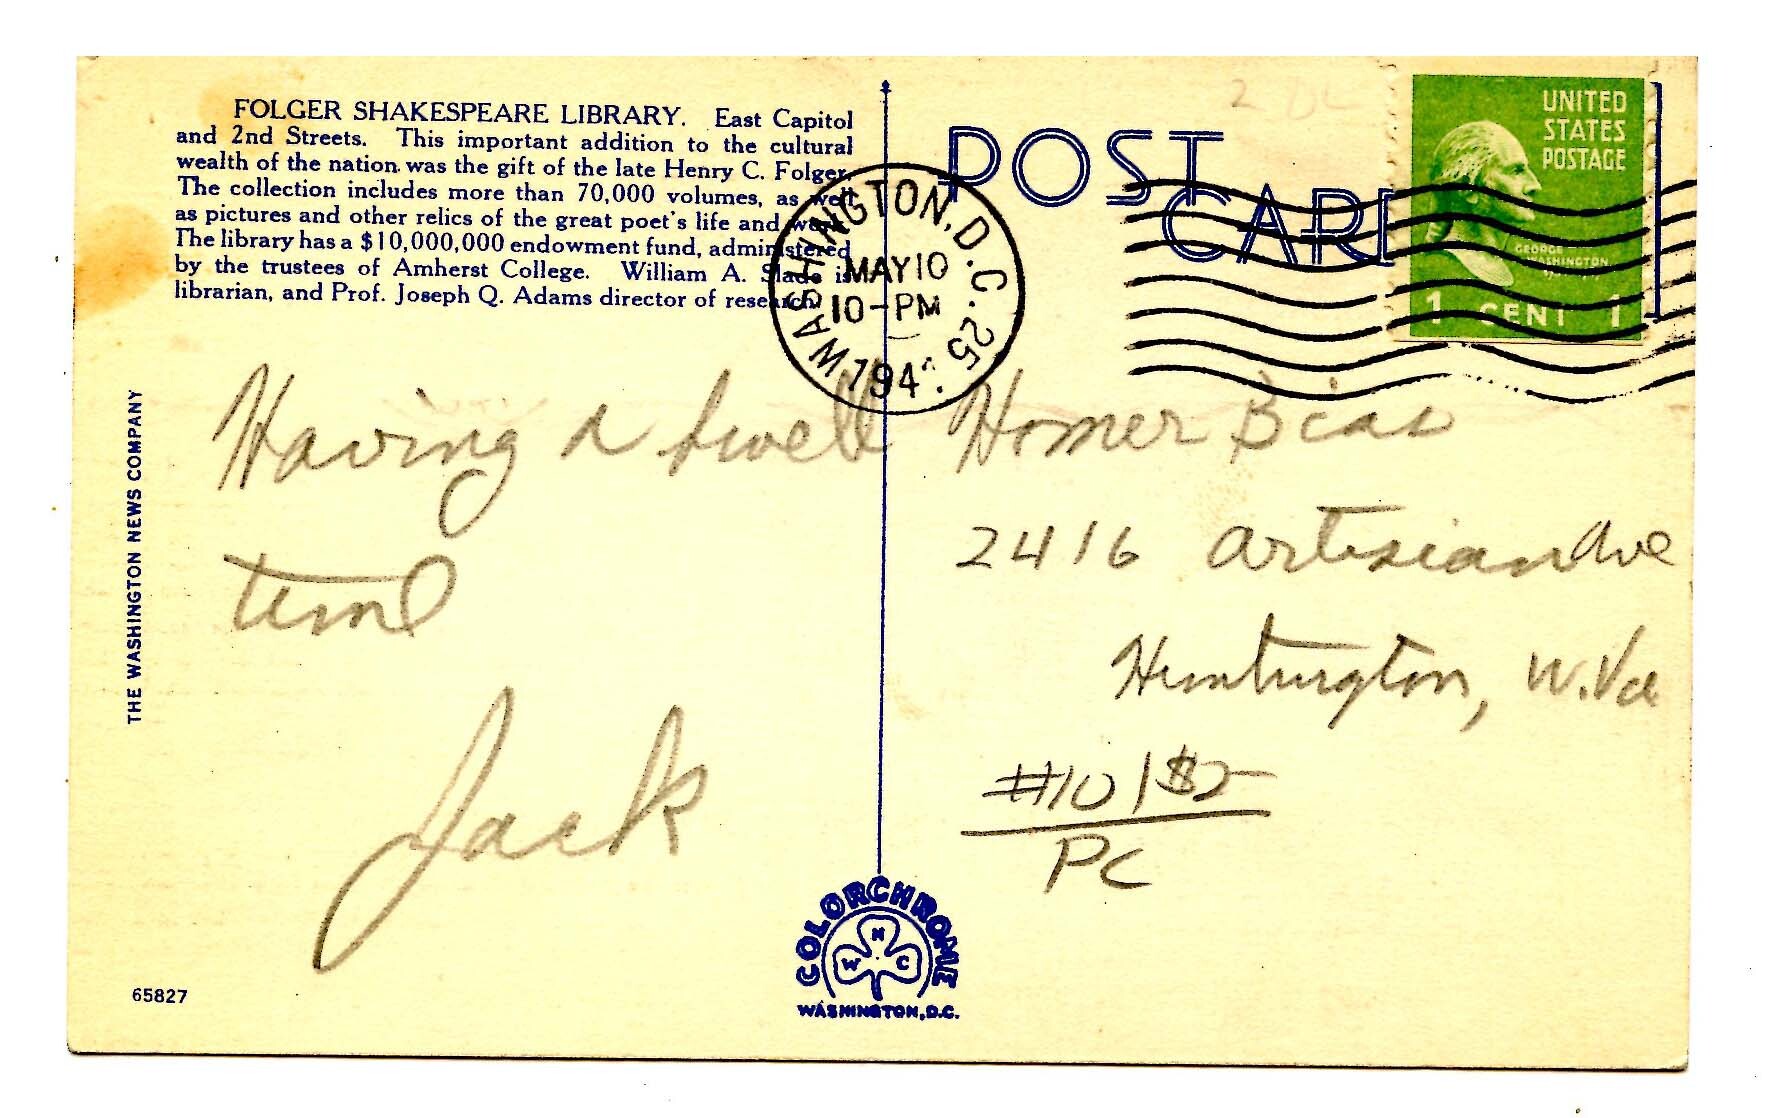 FOLGER SHAKESPEARE LIBRARY. East Capitol
and 2nd Streets. This important addition to the cultural
wealth of the nation was the gift of the late Henry C. Folger.
The collection includes more than 70,000 volumes, as well
as pictures and other relics of the great poet's life and work.
The library has a $10,000,000 endowment fund, administered
by the trustees of Amherst College. William A. Slade is
librarian, and Prof. Joseph Q. Adams director of research.
POST
CARD
WASHINGTON, D.C. 25
MAY 10
10-PM
194
UNITED
STATES
POSTAGE
GEORGE
WASHINGTON
1 CENT 1
THE WASHINGTON NEWS COMPANY
Having a swell
time
Jack
Homer
2416 Artisian Ave
Huntington, W. Va
#10 1$2
PC
COLORCHROME
W N C
WASHINGTON, D.C.
65827